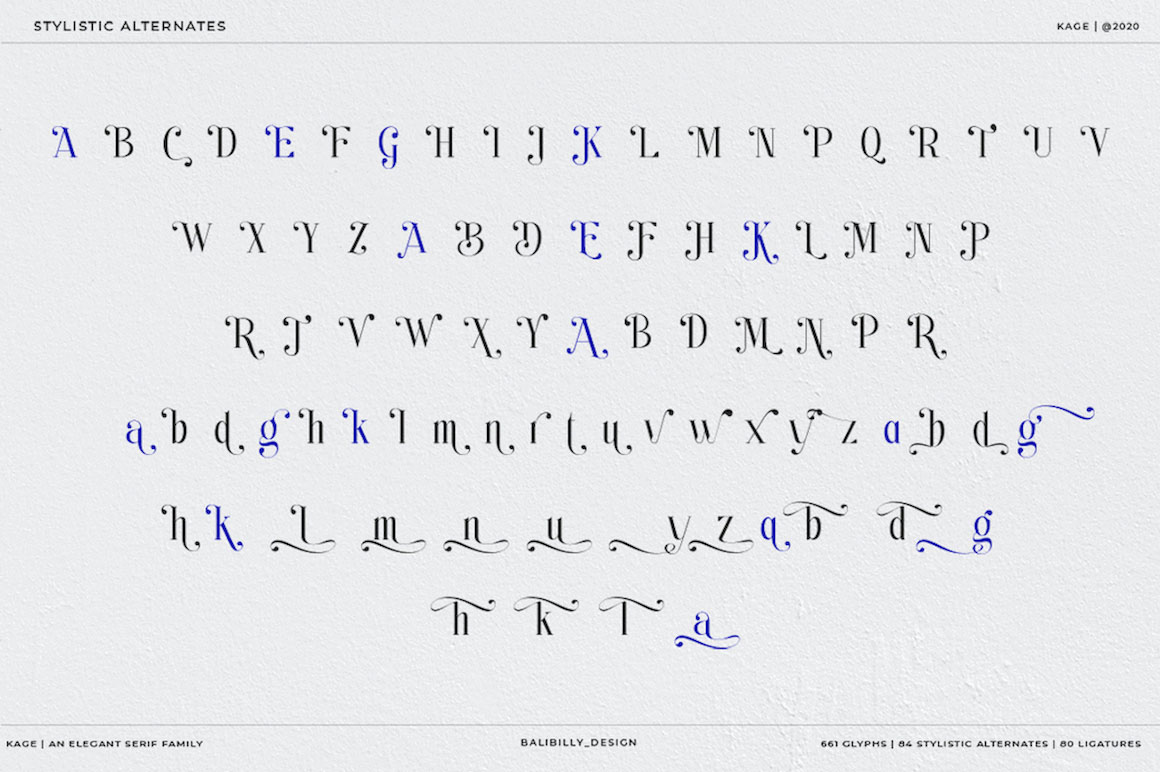 STYLISTIC ALTERNATES
KAGE | @2020
A B C D E F G H I J K L M N P Q R T U V
W X Y Z A B D E F H K L M N P
R T V W X Y A B D M N P R
a b d g h k l m n r t u v w x y z a b d g
h k l m n u y z a b d g
h k l a
KAGE | AN ELEGANT SERIF FAMILY
BALIBILLY_DESIGN
661 GLYPHS | 84 STYLISTIC ALTERNATES | 80 LIGATURES